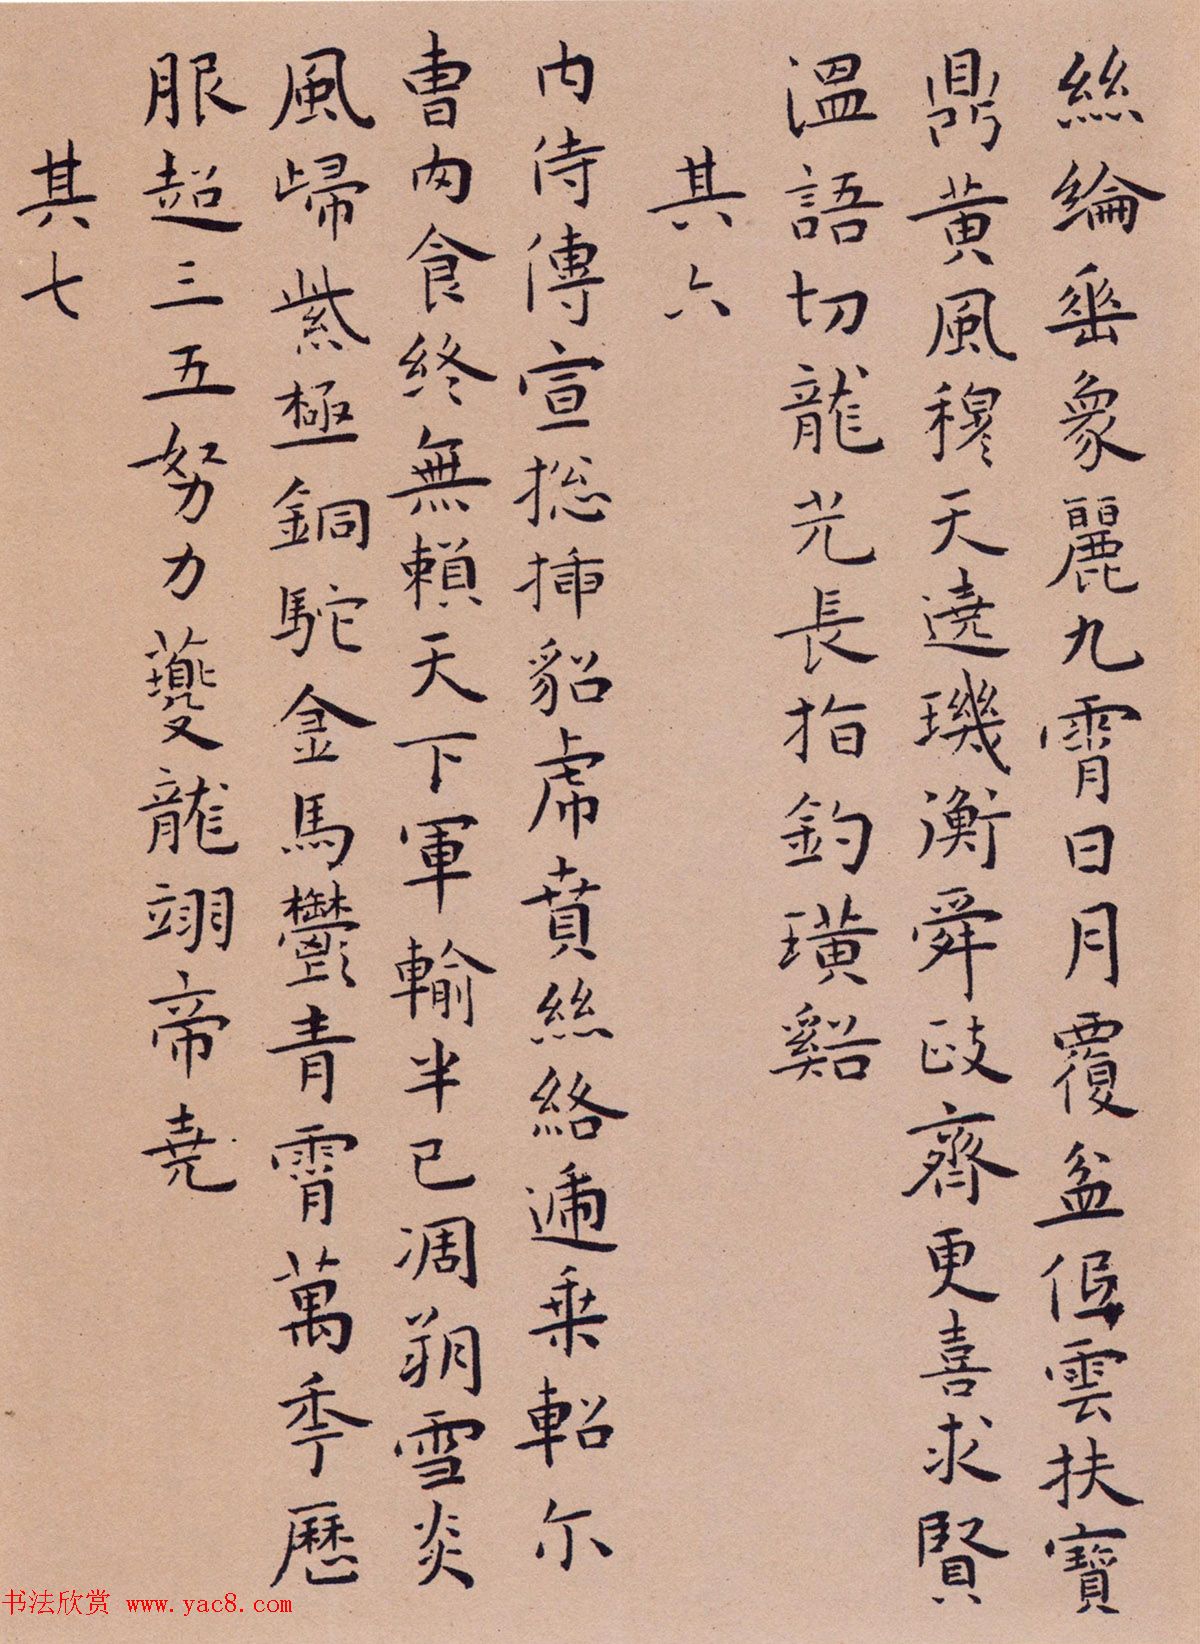 絲綸垂象麗九霄日月覆盆低雲扶寶
鼎黄風穆天遶璣衡舜政齊更喜求賢
溫語切龍光長指釣璜谿
其六
內侍傳宣捴插貂虎賁絲絡逓乗軺尔
曹肉食終無賴天下軍輸半已凋朔雪炎
風歸紫極銅駝金馬鬱青霄萬季歷
服超三五努力夔龍翊帝堯
其七
书法欣赏 www.yac8.com